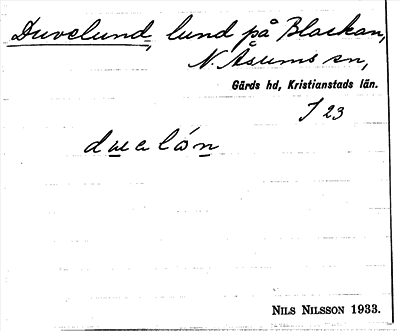 Duvelund, lund på Blackan,
N. Åsums sn,
Gärds hd, Kristianstads län.
I 23
NILS NILSSON 1933.